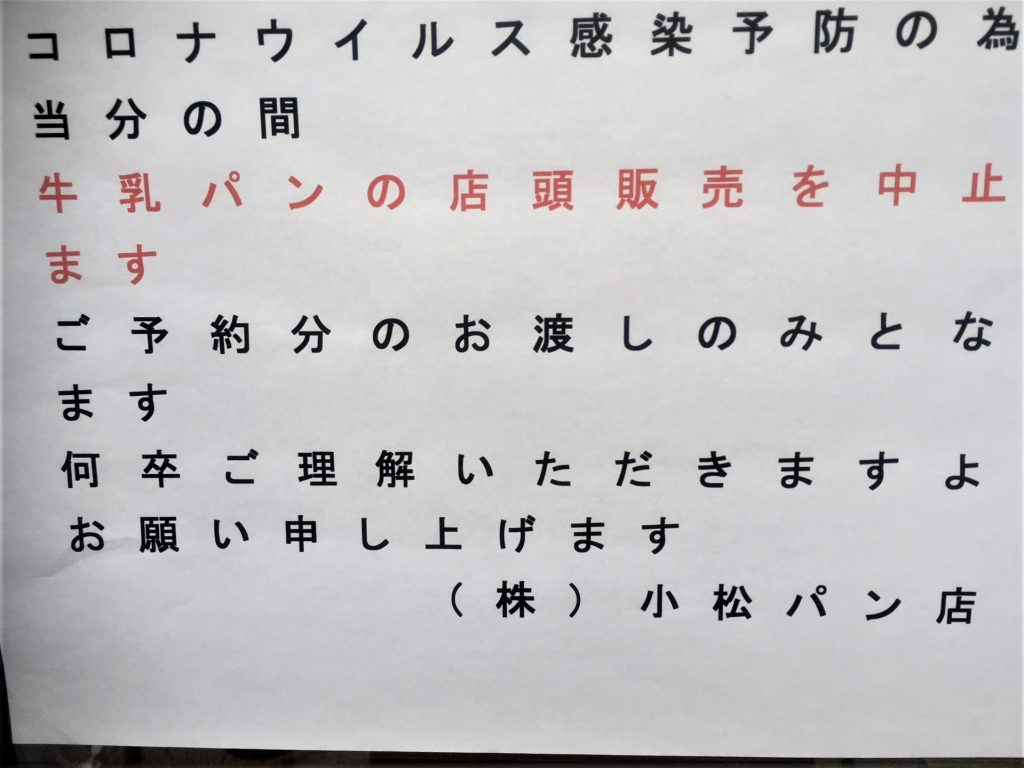 コロナウイルス感染予防の為
当分の間
牛乳パンの店頭販売を中止
ます
ご予約分のお渡しのみとな
ます
何卒ご理解いただきますよ
お願い申し上げます
（株）小松パン店